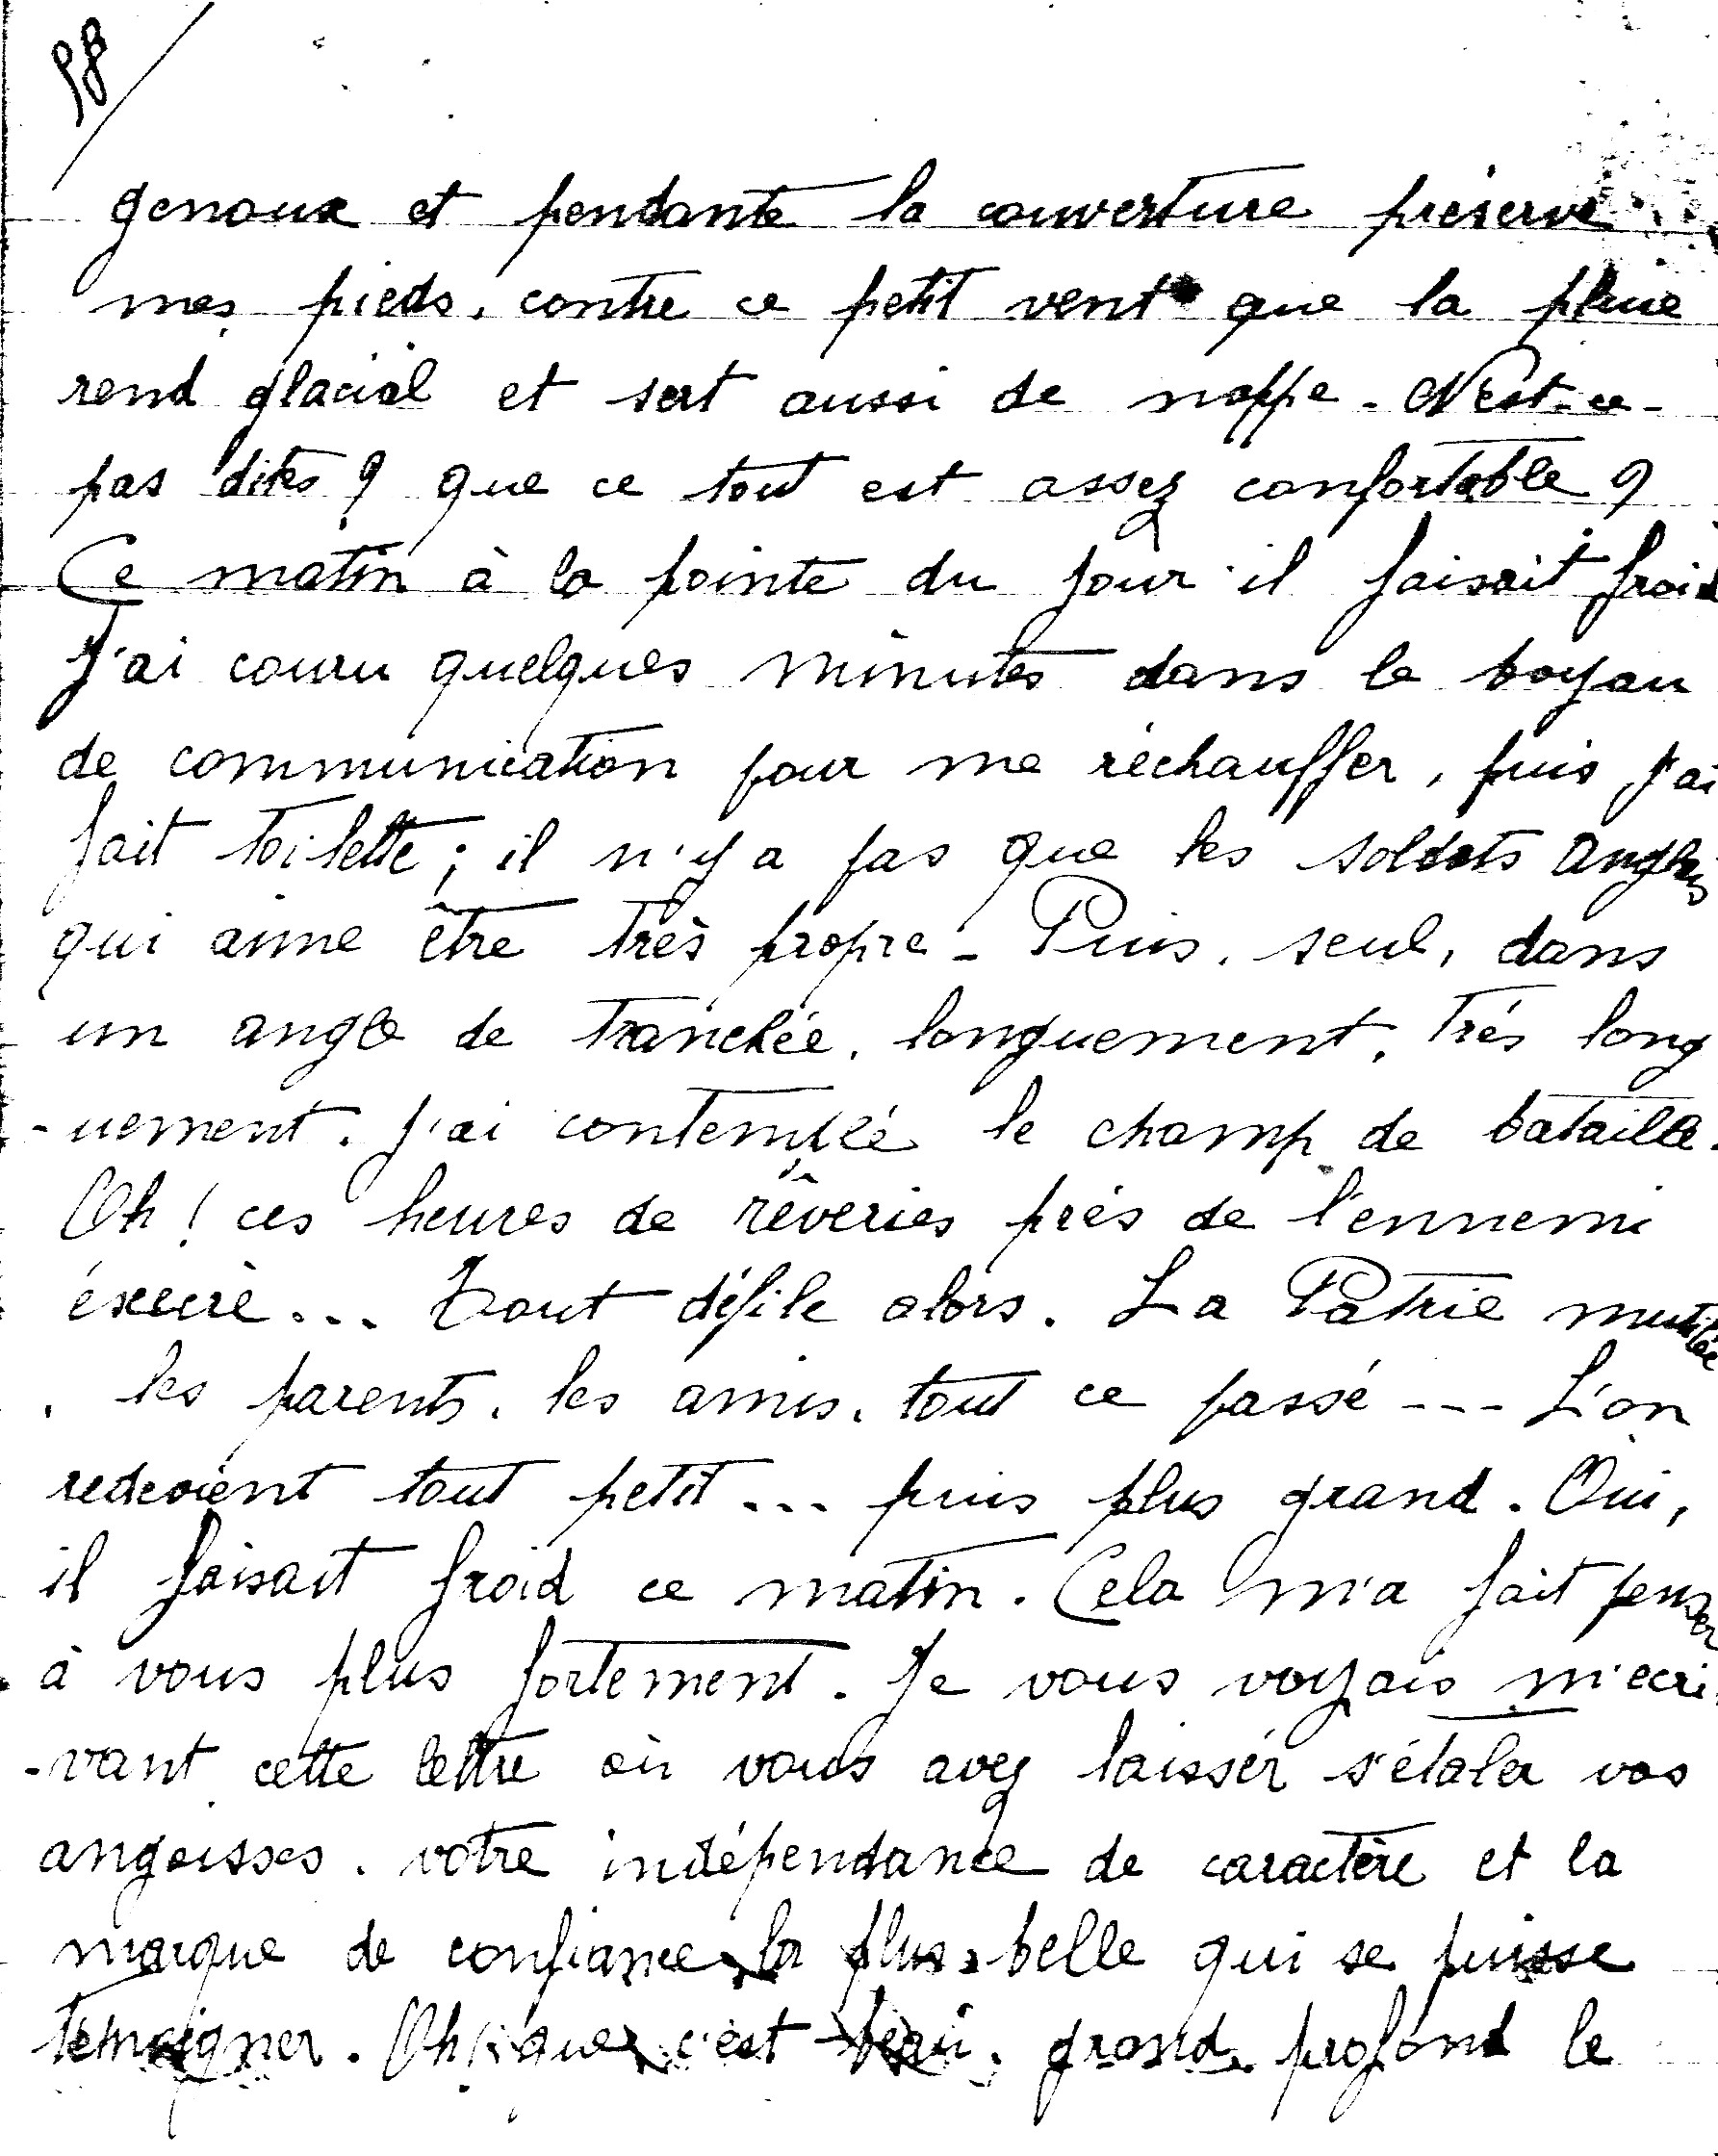 98/
genoux et pendante la couverture préserve
mes pieds, contre ce petit vent que la pluie
rend glacial et sert aussi de nappe. N'est-ce-
pas dites ? que ce tout est assez confortable ?
Ce matin à la pointe du jour il faisait froid
J'ai couru quelques minutes dans le boyau
de communication pour me réchauffer, puis j'ai
fait toilette ; il n'y a pas que les soldats anglais
qui aime être très propre - Puis, seul, dans
un angle de tranchée, longuement, très long
-uement, j'ai contemplé le champ de bataille.
Oh ! ces heures de rêveries près de l'ennemi
éxécré... Tout défile alors. La Patrie mutilée
, les parents, les amis, tout ce passé --- L'on
redevient tout petit... puis plus grand. Oui,
il faisait froid ce matin. Cela m'a fait penser
à vous plus fortement. Je vous voyais m'écri-
-vant cette lettre où vous avez laisser s'étaler vos
angoisses, votre indépendance de caractère et la
marque de confiance la plus belle qui se puisse
témoigner. Oh ! que c'est beau, grand, profond le